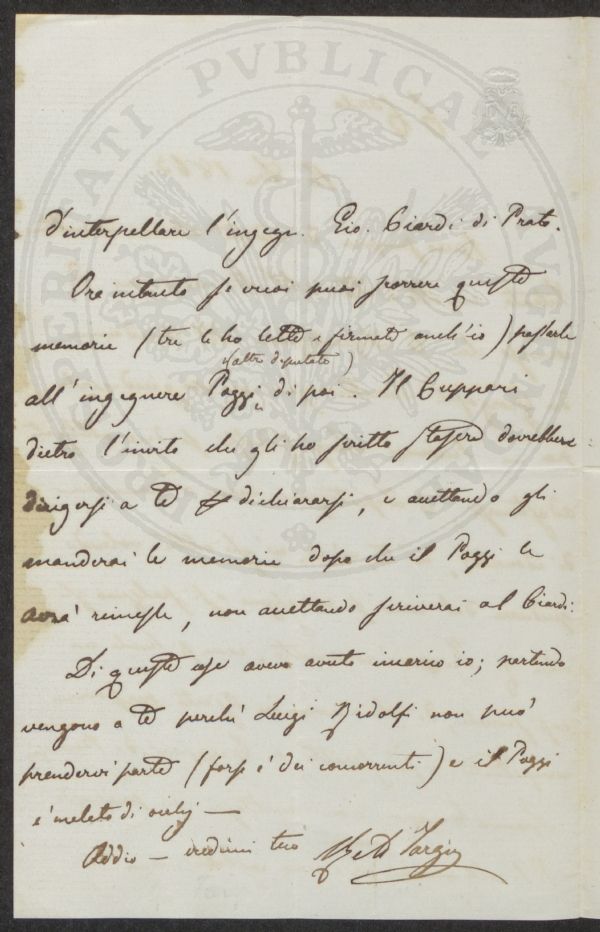 PROSPERITATI PVBLICAE AVGENDAE
d'interpellare l'ingegn. Gio. Ciardi di Prato.
Ora intanto se vuoi puoi scorrere queste
memorie (tre le ho lette e firmate anch'io) passarle
(altro deputato)
all'ingegnere Poggi di poi. Il Cuppari
dietro l'invito che gli ho scritto stasera dovrebbe
dirigersi a te e dichiararsi, e accettando gli
manderai le memorie dopo che il Poggi le
avrà rimesse, non accettando scriverai al Ciardi.
Di queste cose avevo avuto incarico io; partendo
vengono a te perché Luigi Ridolfi non può
prendervi parte (forse è dei concorrenti) e il Poggi
è malato di occhj —
Addio — credimi tuo
Targioni